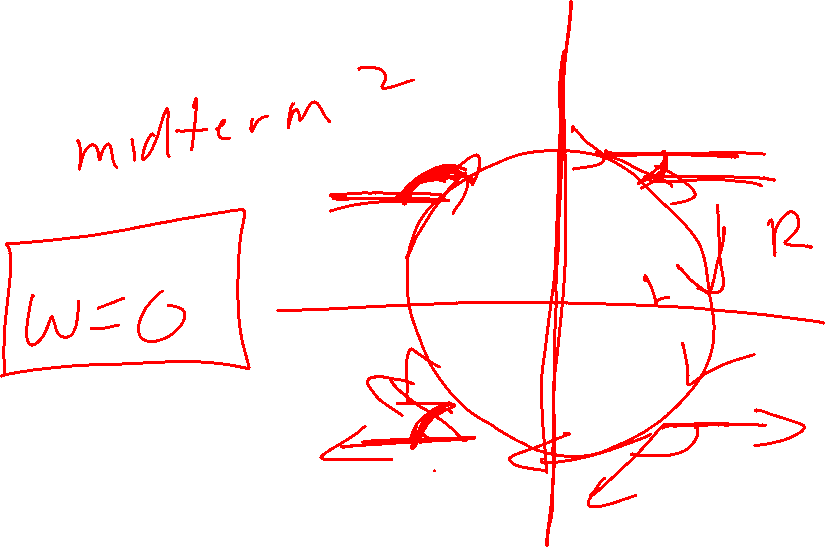 midterm 2
W=0
R
r